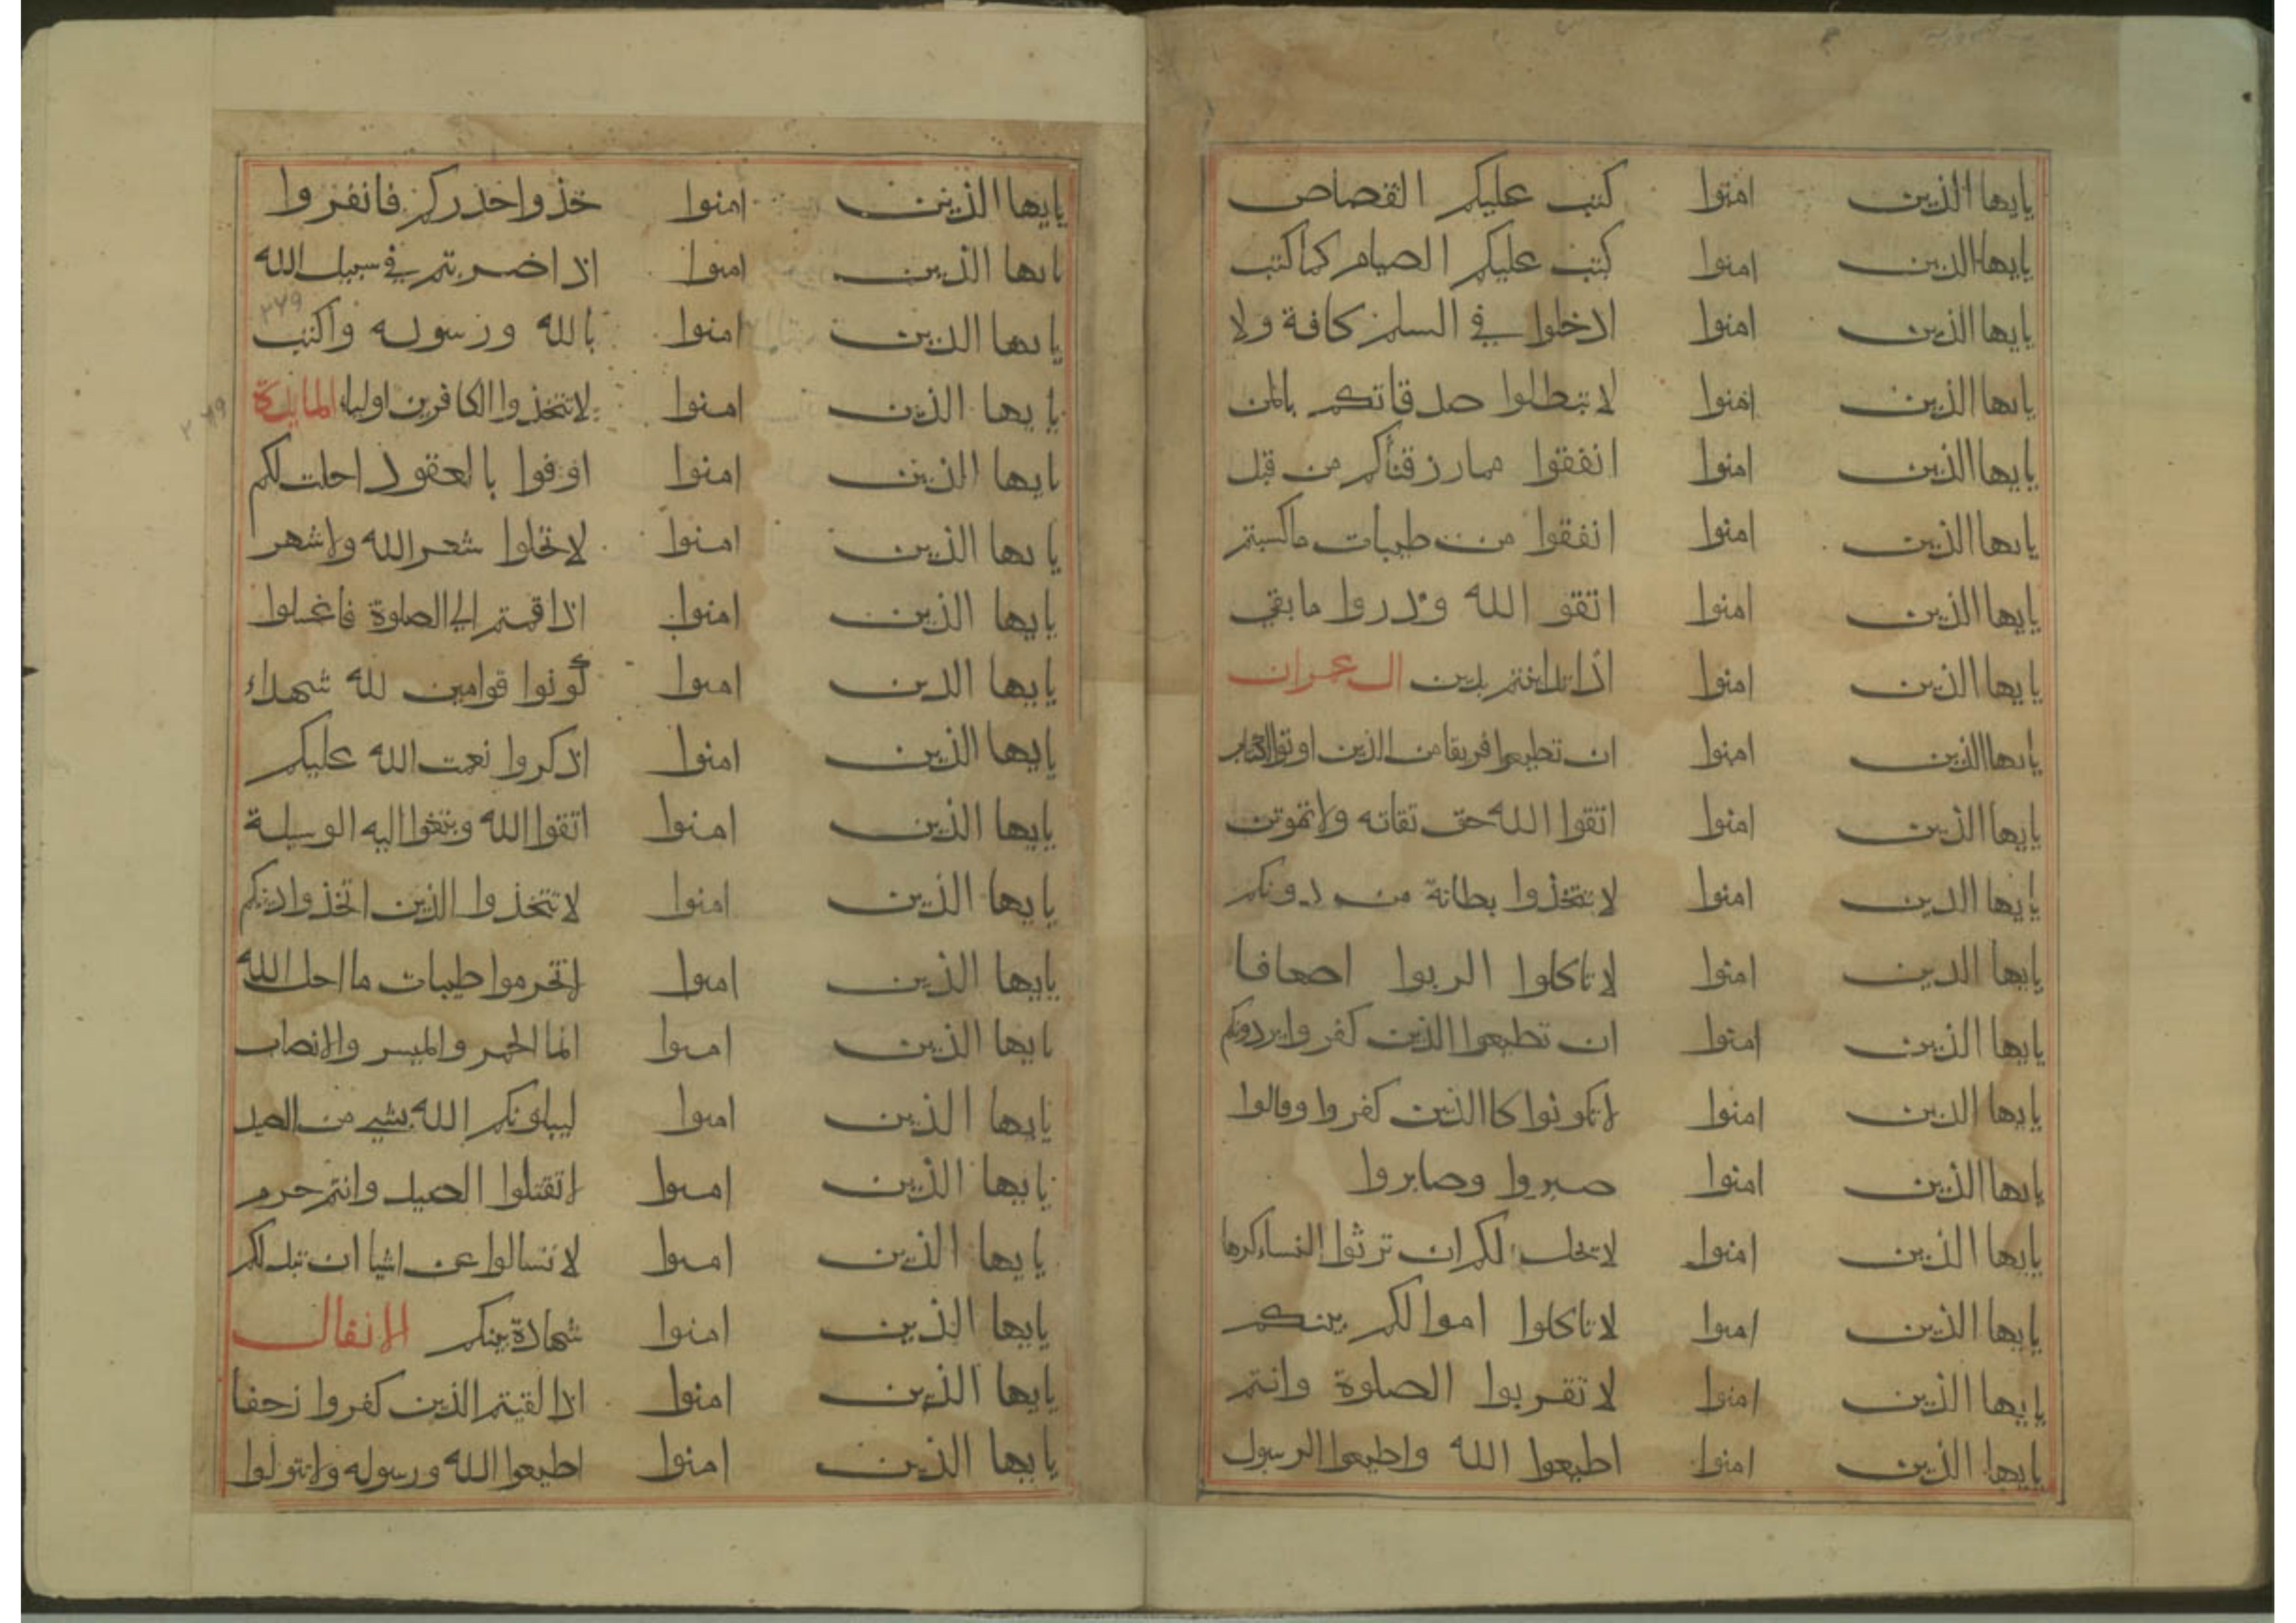 يايها الذين امنوا كتب عليكم القصاص
يايها الذين امنوا كتب عليكم الصيام كما كتب
يايها الذين امنوا ادخلوا في السلم كافة ولا
يايها الذين امنوا لا تبطلوا صدقاتكم بالمن
يايها الذين امنوا انفقوا مما رزقناكم من قبل
يايها الذين امنوا انفقوا من طيبات ما كسبتم
يايها الذين امنوا اتقو الله وذروا ما بقي
يايها الذين امنوا اذا تداينتم بدين ال عمران
يايها الذين امنوا ان تطيعوا فريقا من الذين اوتوا الكتاب
يايها الذين امنوا اتقوا الله حق تقاته ولا تموتن
يايها الذين امنوا لا تتخذوا بطانة من دونكم
يايها الذين امنوا لا تاكلوا الربوا اضعافا
يايها الذين امنوا ان تطيعوا الذين كفروا يردوكم
يايها الذين امنوا لا تكونوا كاالذين كفروا وقالوا
يايها الذين امنوا صبروا وصابروا
يايها الذين امنوا لا يحل لكم ان ترثوا النساء كرها
يايها الذين امنوا لا تاكلوا اموالكم بينكم
يايها الذين امنوا لا تقربوا الصلوة وانتم
يايها الذين امنوا اطيعوا الله واطيعوا الرسول
يايها الذين امنوا خذوا حذركم فانفروا
يايها الذين امنوا اذا ضربتم في سبيل الله
يايها الذين امنوا بالله ورسوله واكتب
يايها الذين امنوا لا تتخذوا الكافرين اولياء المايدة
يايها الذين امنوا اوفوا بالعقود احلت لكم
يايها الذين امنوا لا تحلوا شعر الله ولا شهر
يايها الذين امنوا اذا قمتم الي الصلوة فاغسلوا
يايها الذين امنوا كونوا قوامين لله شهداء
يايها الذين امنوا اذكروا نعمت الله عليكم
يايها الذين امنوا اتقوا الله وبتغوا اليه الوسيلة
يايها الذين امنوا لا تتخذوا الذين اتخذوا دينكم
يايها الذين امنوا لا تحرموا طيبات ما احل الله
يايها الذين امنوا انما الخمر والميسر والانصاب
يايها الذين امنوا ليبلونكم الله بشي من الصيد
يايها الذين امنوا لا تقتلوا الصيد وانتم حرم
يايها الذين امنوا لا تسالوا عن اشيا ان تبد لكم
يايها الذين امنوا شهادة بينكم الانفال
يايها الذين امنوا اذا لقيتم الذين كفروا زحفا
يايها الذين امنوا اطيعوا الله ورسوله ولا تتولوا